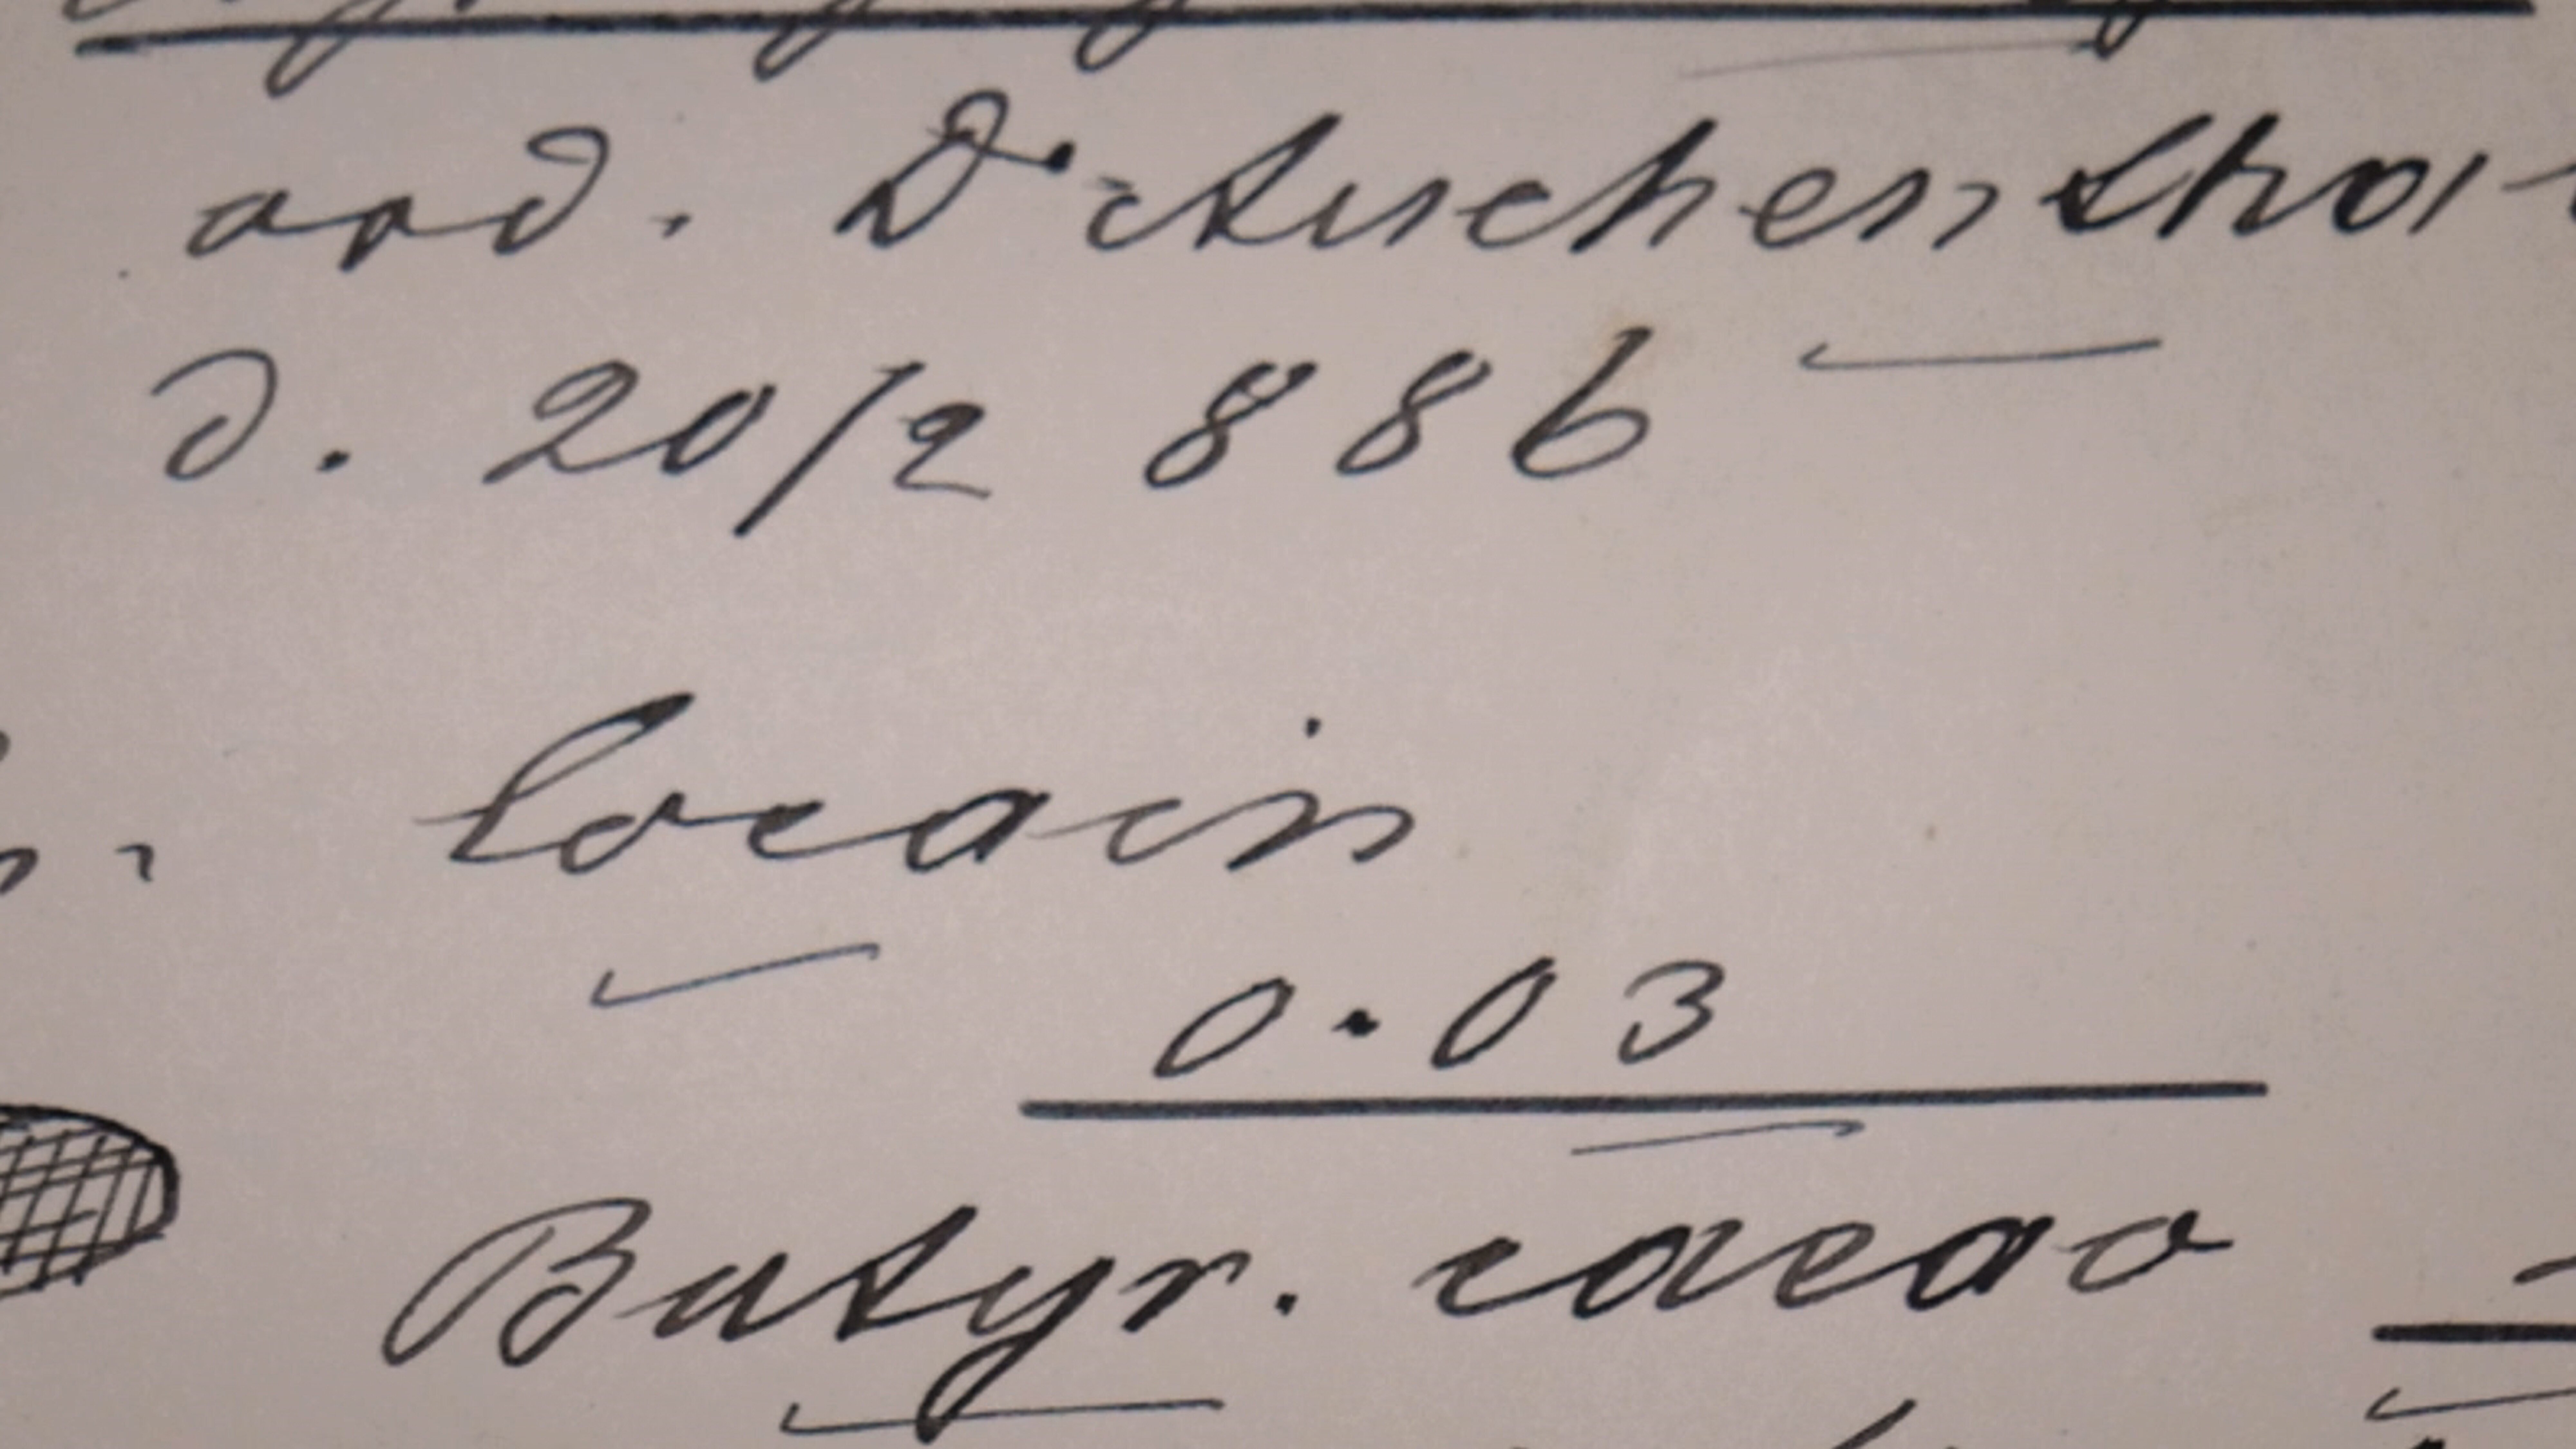 ord. Dr Auchenthal
d. 20/2 886
Cocain
0.03
Butyr. cacao